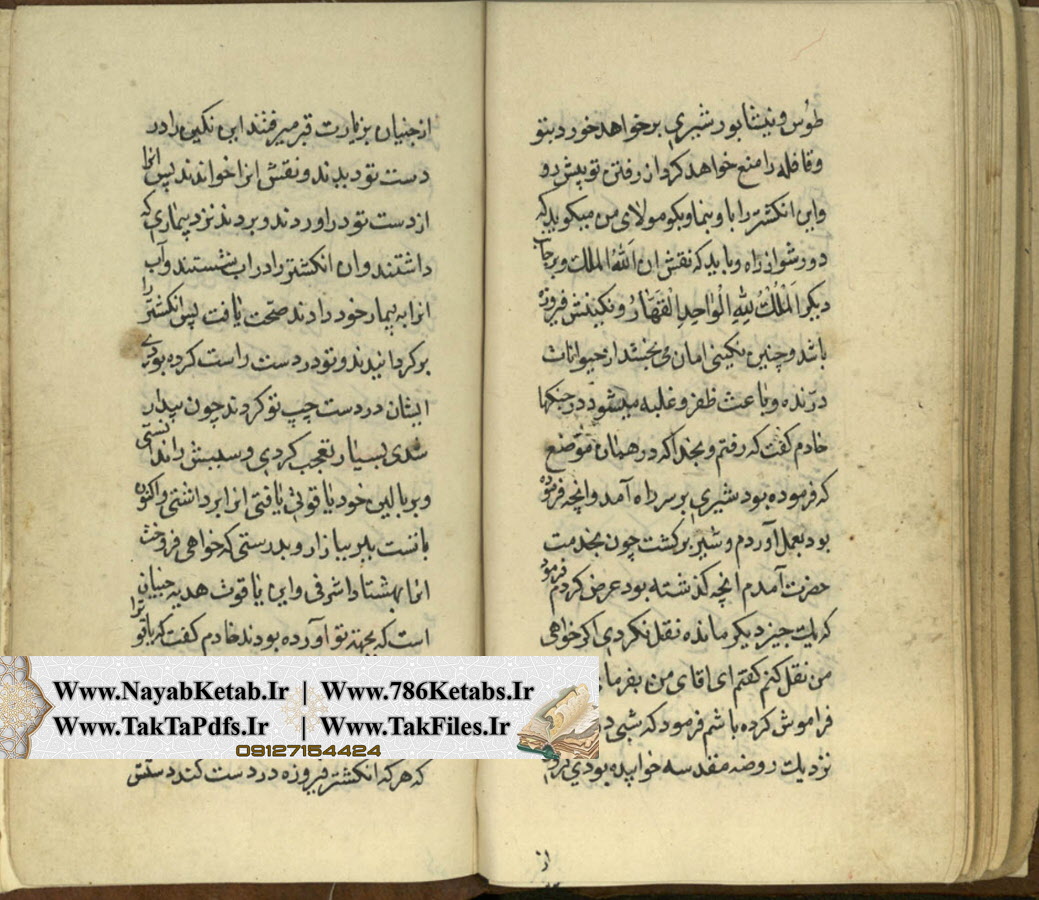 طوس و نیشابور شیری برخواهد خورد بتو
و قافله را منع خواهد کرد از رفتن تو پیش رو
و این انکشتر را باو بنما و بکو مولای من میکوید که
دور شو از راه و باید که نقش ان اَللهُ الملک و برجانب
دیکر اَلْمُلْکُ لِلّٰهِ الْوٰاحِدِ الْقَهّٰارُ و نکینش فیروزه
باشد و چنین نکینی امان می بخشد از حیوانات
درّنده و باعث ظفر و غلبه میشود در جنکها
خادم کفت که رفتم و بخدا که در همان موضع
که فرموده بود شیری بر سر راه آمد و انچه فرموده
بود بعمل آوردم و شیر برکشت چون بخدمت
حضرت آمدم انچه کذشته بود عرض کردم فرمود
که یک چیز دیکر مانده نقل نکردی اکر خواهی
من نقل کنم کفتم ای اقای من بفرما
فراموش کرده باشم فرمود که شبی د
نزدیک روضه مقدسه خوابیده بودی کروهی
از
از جنیان بزیارت قبر میرفتند این نکین را در
دست تو دیدند و نقش انرا خواندند پس انرا
از دست تو دراوردند و بردند نزد بیماری که
داشتند و ان انکشتر را در اب شستند و آب
انرا به بیمار خود دادند صحت یافت پس انکشتر را
برکردانیدند و تو در دست راست کرده بودی
ایشان در دست چپ تو کردند چون بیدار
شدی بسیار تعجب کردی و سببش را ندانستی
و بر بالین خود یاقوتی یافتی انرا برداشتی و اکنون
با تست ببر ببازار و بدرستی که خواهی فروخت
انرا بهشتاد اشرفی و این یاقوت هدیه جنیان
است که بجهة تو آورده بودند خادم کفت که یاقوترا
Www.NayabKetab.Ir | Www.786Ketabs.Ir
Www.TakTaPdfs.Ir | Www.TakFiles.Ir
09127154424
که هر که انکشتر فیروزه در دست کند دستش